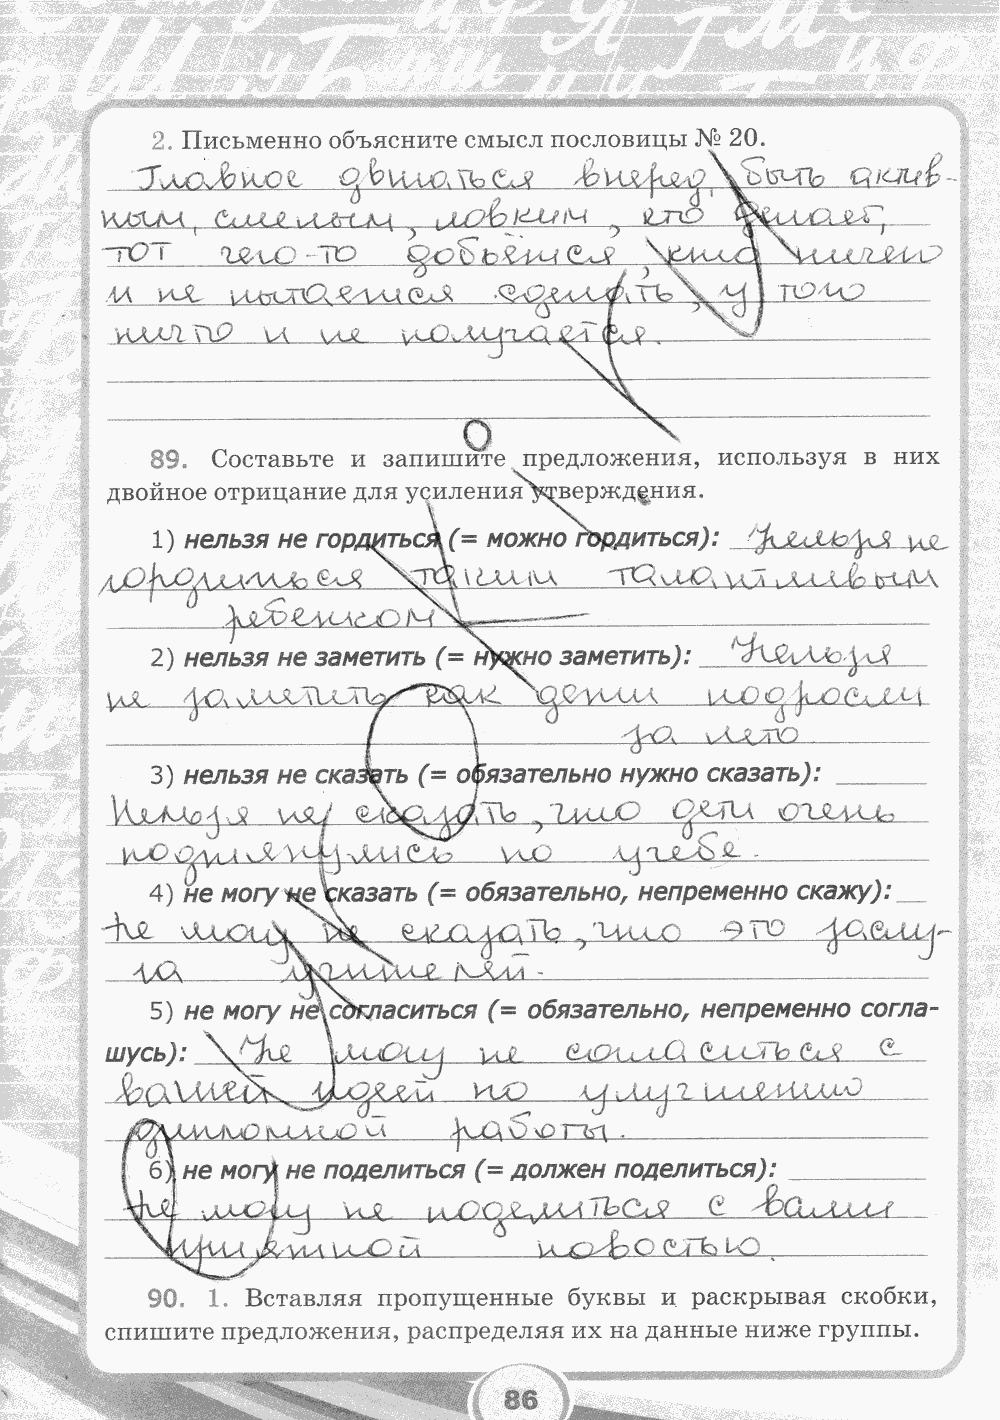 2. Письменно объясните смысл пословицы № 20.
Главное двигаться вперед, быть актив-
ным, смелым, ловким, кто делает,
тот чего-то добьётся, кто ничего
и не пытается сделать, у того
ничто и не получается.
89. Составьте и запишите предложения, используя в них
двойное отрицание для усиления утверждения.
1) нельзя не гордиться (= можно гордиться): Нельзя не
гордиться таким талантливым
ребенком
2) нельзя не заметить (= нужно заметить): Нельзя
не заметить как дети подросли
за лето
3) нельзя не сказать (= обязательно нужно сказать):
Нельзя не сказать, что дети очень
подтянулись по учебе.
4) не могу не сказать (= обязательно, непременно скажу):
Не могу не сказать, что это заслу-
га учителей.
5) не могу не согласиться (= обязательно, непременно согла-
шусь): Не могу не согласиться с
вашей идеей по улучшению
дипломной работы.
6) не могу не поделиться (= должен поделиться):
Не могу не поделиться с вами
приятной новостью.
90. 1. Вставляя пропущенные буквы и раскрывая скобки,
спишите предложения, распределяя их на данные ниже группы.
86